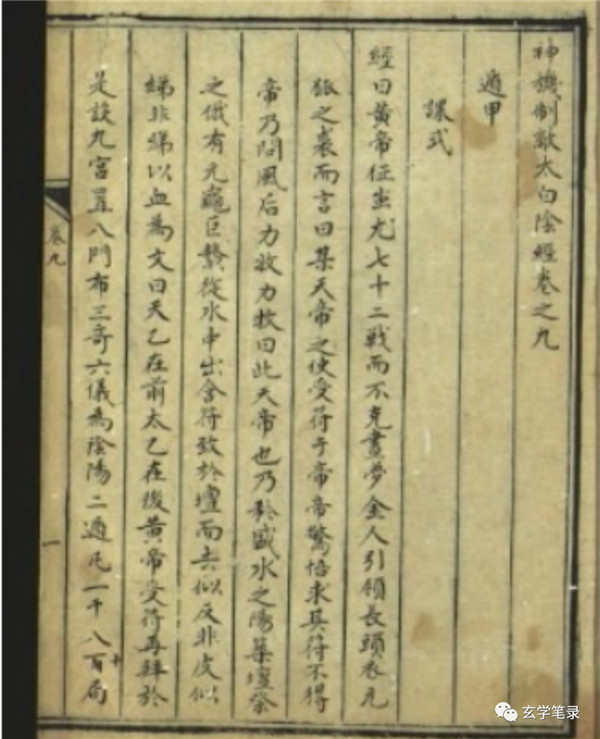 神機制敵太白陰經卷之九
遁甲
課式
經曰黃帝征蚩尤七十二戰而不克晝夢金人引領長頭衣元
狐之裘而言曰某天帝之使受符于帝帝驚悟求其符不得
帝乃問風后力牧力牧曰此天帝也乃於盛水之陽築壇祭
之俄有元龜巨鰲從水中出含符致於壇而去似皮非皮似
綈非綈以血為文曰天乙在前太乙在後黃帝受符再拜於
是設九宮置八門布三奇六儀為陰陽二遁凡一千八百局
十
卷九
一
玄学笔录